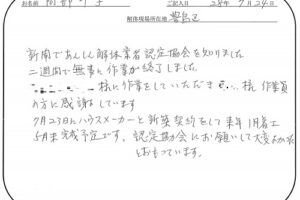 お名前
ご記入日 28年 9月24日
解体現場所在地 豊島区
新聞であんしん解体業者認定協会を知りました
二週間で無事に作業が終了しました
様に作業をしていただき 様、作業員
の方に感謝しています
9月23日にハウスメーカーと新築契約をして来年1月着工
5月末完成予定です。認定協会にお願いして大変よかった
とおもっています。